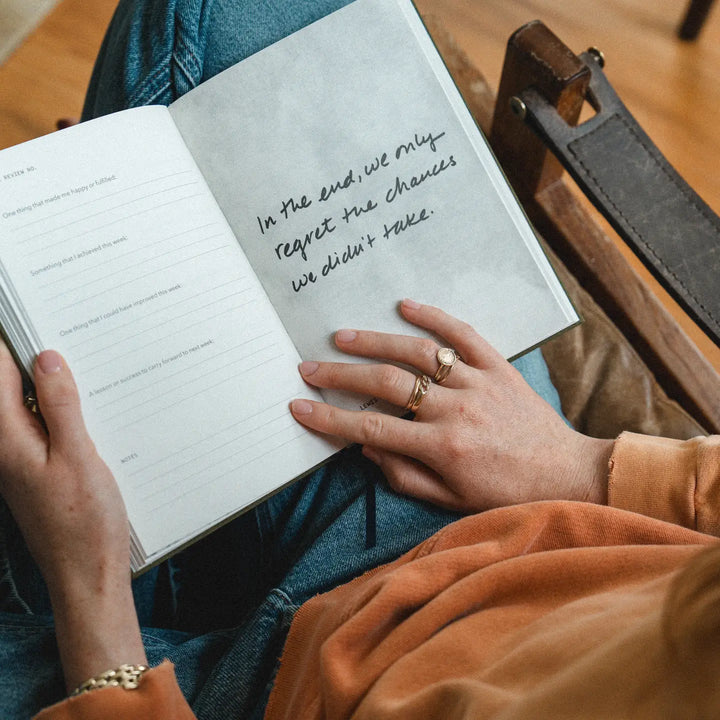 REVIEW NO.
One thing that made me happy or fulfilled:
Something that I achieved this week:
One thing that I could have improved this week:
A lesson or success to carry forward to next week:
NOTES
In the end, we only
regret the chances
we didn't take.